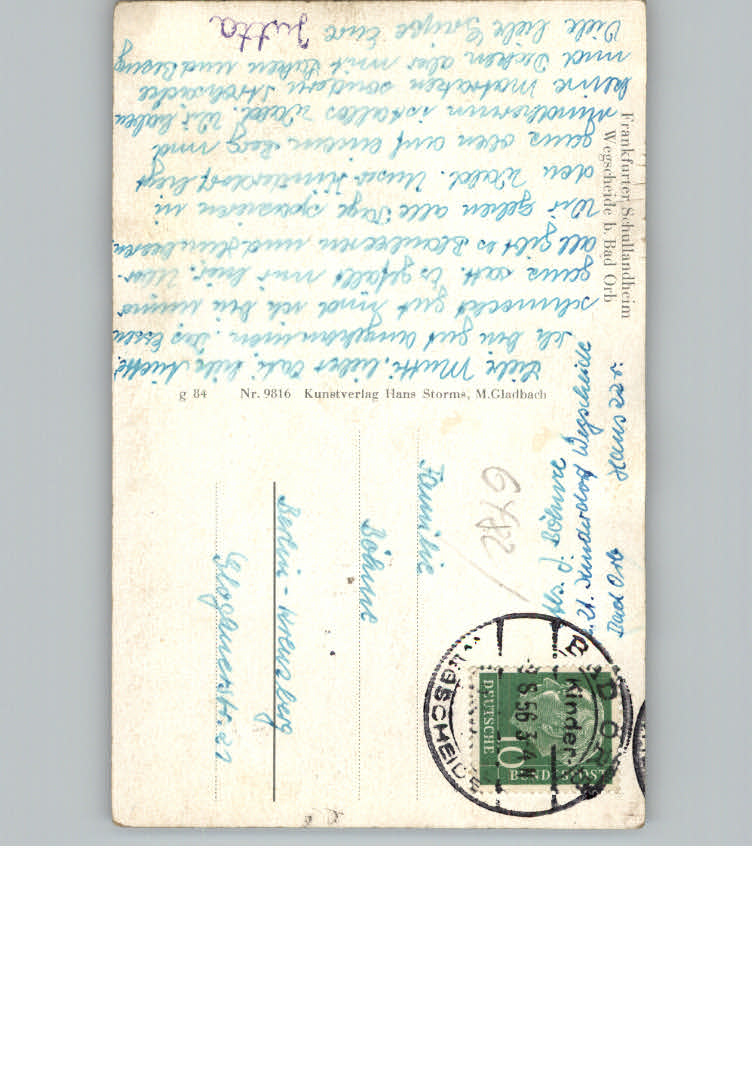 Frankfurter Schullandheim
Wegscheide b. Bad Orb
Liebe Mutti, lieber Vati, liebe
Ich bin gut angekommen. Das Essen
schmeckt gut und ich bin immer
ganz satt. Es gefällt mir hier. Über-
all gibt es Blaubeeren und Himbeeren.
Wir gehen alle Tage spazieren in
den Wald. Unser Kinderdorf liegt
ganz oben auf einem Berg und
rundherum ist alles Wald. Wir haben
keine Matratzen sondern Strohsäcke
und Decken aber mit Laken und Bezug
Viele liebe Grüße Eure Jutta
g 84 Nr. 9816 Kunstverlag Hans Storms, M.Gladbach
Abs. J. Böhme
z. Zt. Kinderdorf Wegscheide
Bad Orb Haus 22
6482
BAD ORB
Kinder-
8.56.3-4
WEGSCHEIDE
DEUTSCHE
BUNDESPOST
10
Familie
Böhme
Berlin - Kreuzberg
Glogauerstr. 21